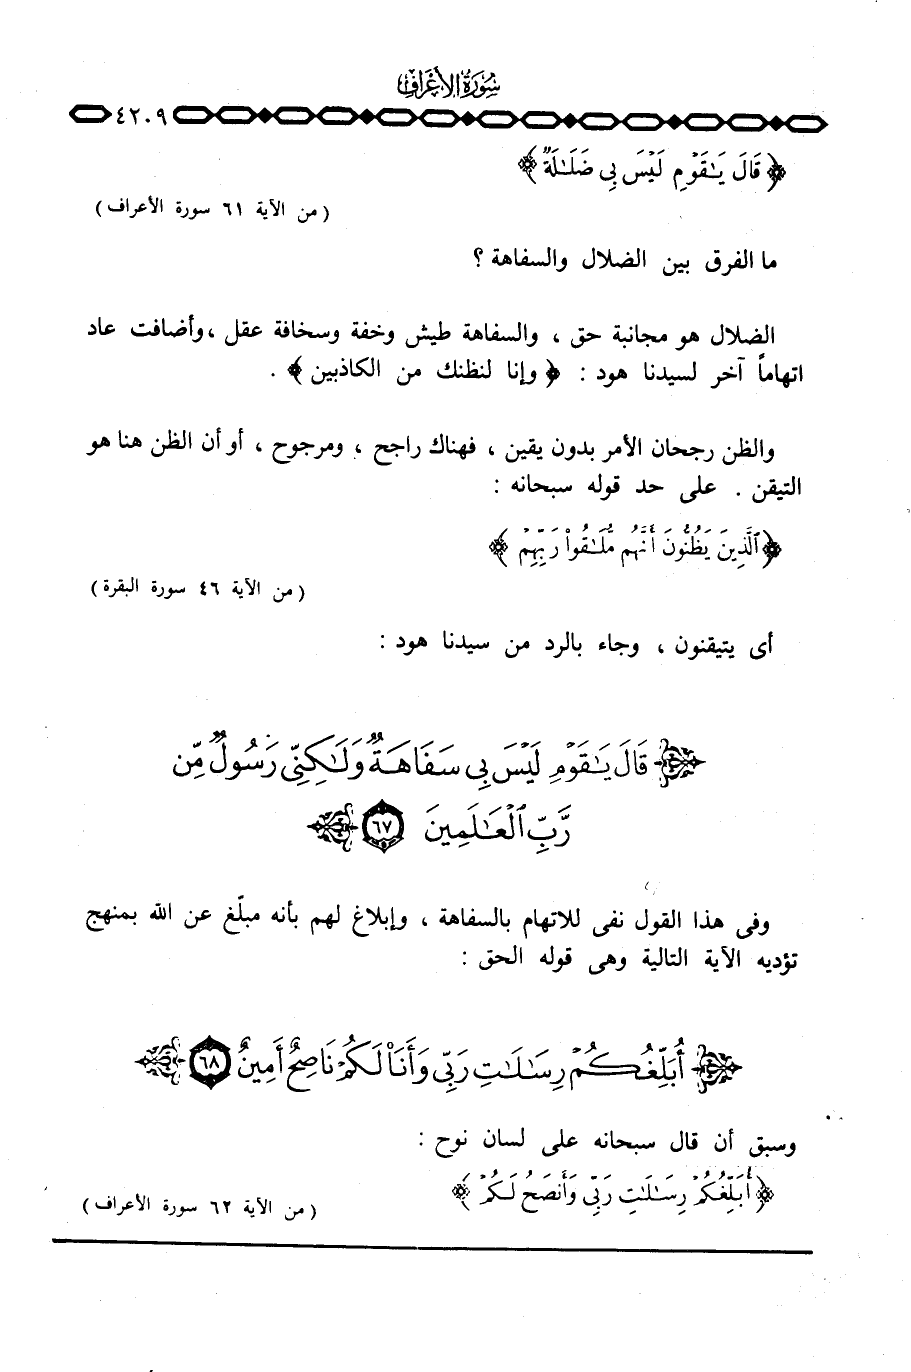 سورة الأعراف
٤٢٠٩
﴿ قَالَ يَٰقَوْمِ لَيْسَ بِي ضَلَٰلَةٌ ﴾
( من الآية ٦١ سورة الأعراف )
ما الفرق بين الضلال والسفاهة ؟
الضلال هو مجانبة حق ، والسفاهة طيش وخفة وسخافة عقل ،وأضافت عاد
اتهاماً آخر لسيدنا هود : ﴿ وإنا لنظنك من الكاذبين ﴾ .
والظن رجحان الأمر بدون يقين ، فهناك راجح ، ومرجوح ، أو أن الظن هنا هو
التيقن . على حد قوله سبحانه :
﴿ ٱلَّذِينَ يَظُنُّونَ أَنَّهُم مُّلَٰقُوا۟ رَبِّهِمْ ﴾
( من الآية ٤٦ سورة البقرة )
أى يتيقنون ، وجاء بالرد من سيدنا هود :
﴿ قَالَ يَٰقَوْمِ لَيْسَ بِي سَفَاهَةٌ وَلَٰكِنِّي رَسُولٌ مِّن
رَّبِّ ٱلْعَٰلَمِينَ ٦٧ ﴾
وفى هذا القول نفى للاتهام بالسفاهة ، وإبلاغ لهم بأنه مبلّغ عن الله بمنهج
تؤديه الآية التالية وهى قوله الحق :
﴿ أُبَلِّغُكُمْ رِسَٰلَٰتِ رَبِّي وَأَنَا۠ لَكُمْ نَاصِحٌ أَمِينٌ ٦٨ ﴾
وسبق أن قال سبحانه على لسان نوح :
﴿ أُبَلِّغُكُمْ رِسَٰلَٰتِ رَبِّي وَأَنصَحُ لَكُمْ ﴾
( من الآية ٦٢ سورة الأعراف )